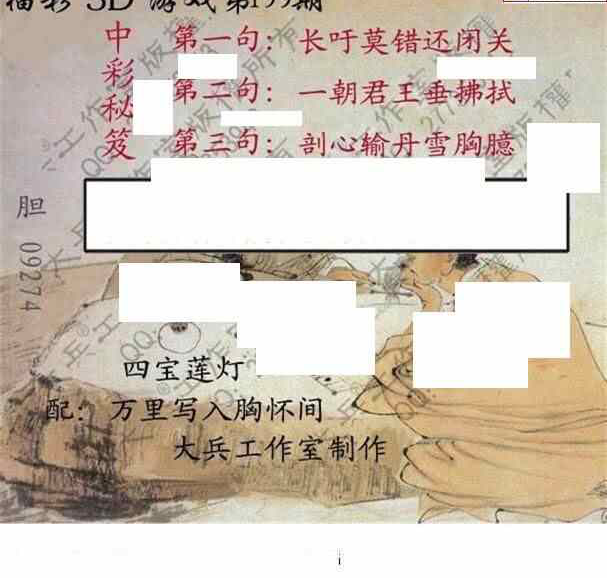 福彩 3D 游戏第199期
中彩秘笈
第一句：长吁莫错还闭关
第二句：一朝君王垂拂拭
第三句：剖心输丹雪胸臆
胆 09274
四宝莲灯
配：万里写入胸怀间
大兵工作室制作
i